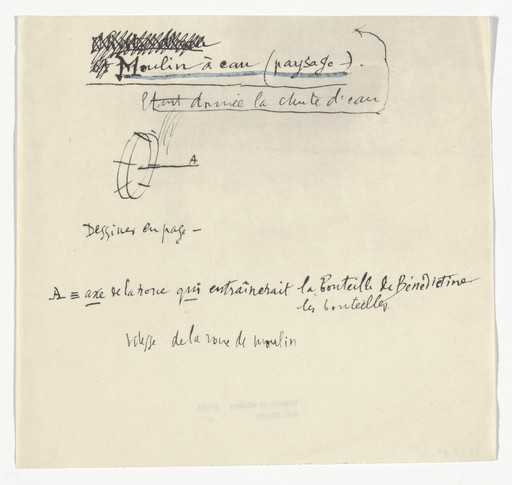 et Moulin à eau (paysage –).
Etant donnée la chute d'eau
A
Dessiner en page –
A ≡ axe de la roue qui entraînerait la Bouteille de Bénédictine
les bouteilles
Vitesse de la roue de moulin